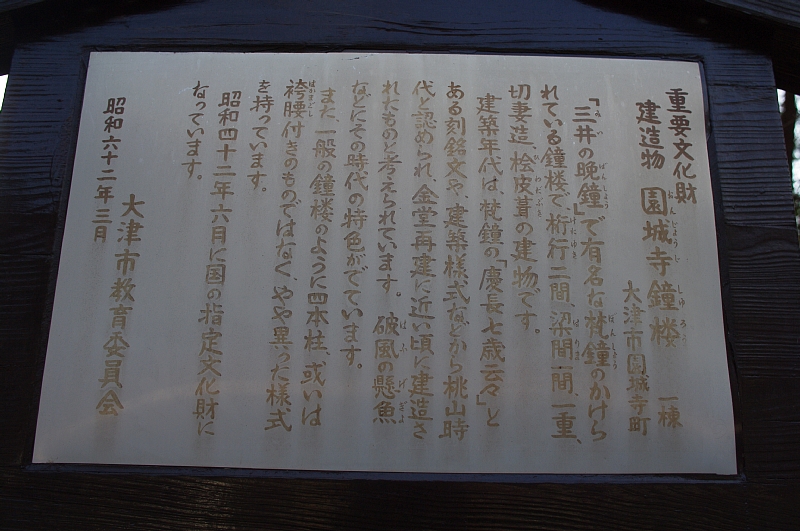 重要文化財
建造物 園城寺鐘楼 一棟
大津市園城寺町
「三井の晩鐘」で有名な梵鐘のかけら
れている鐘楼で、桁行二間、梁間一間、一重、
切妻造、桧皮葺の建物です。
建築年代は、梵鐘の「慶長七歳云々」と
ある刻銘文や、建築様式などから桃山時
代と認められ、金堂再建に近い頃に建造さ
れたものと考えられています。破風の懸魚
などにその時代の特色がでています。
また、一般の鐘楼のように四本柱、或いは
袴腰付きのものではなく、やや異った様式
を持っています。
昭和四十二年六月に国の指定文化財に
なっています。
大津市教育委員会
昭和六十二年三月